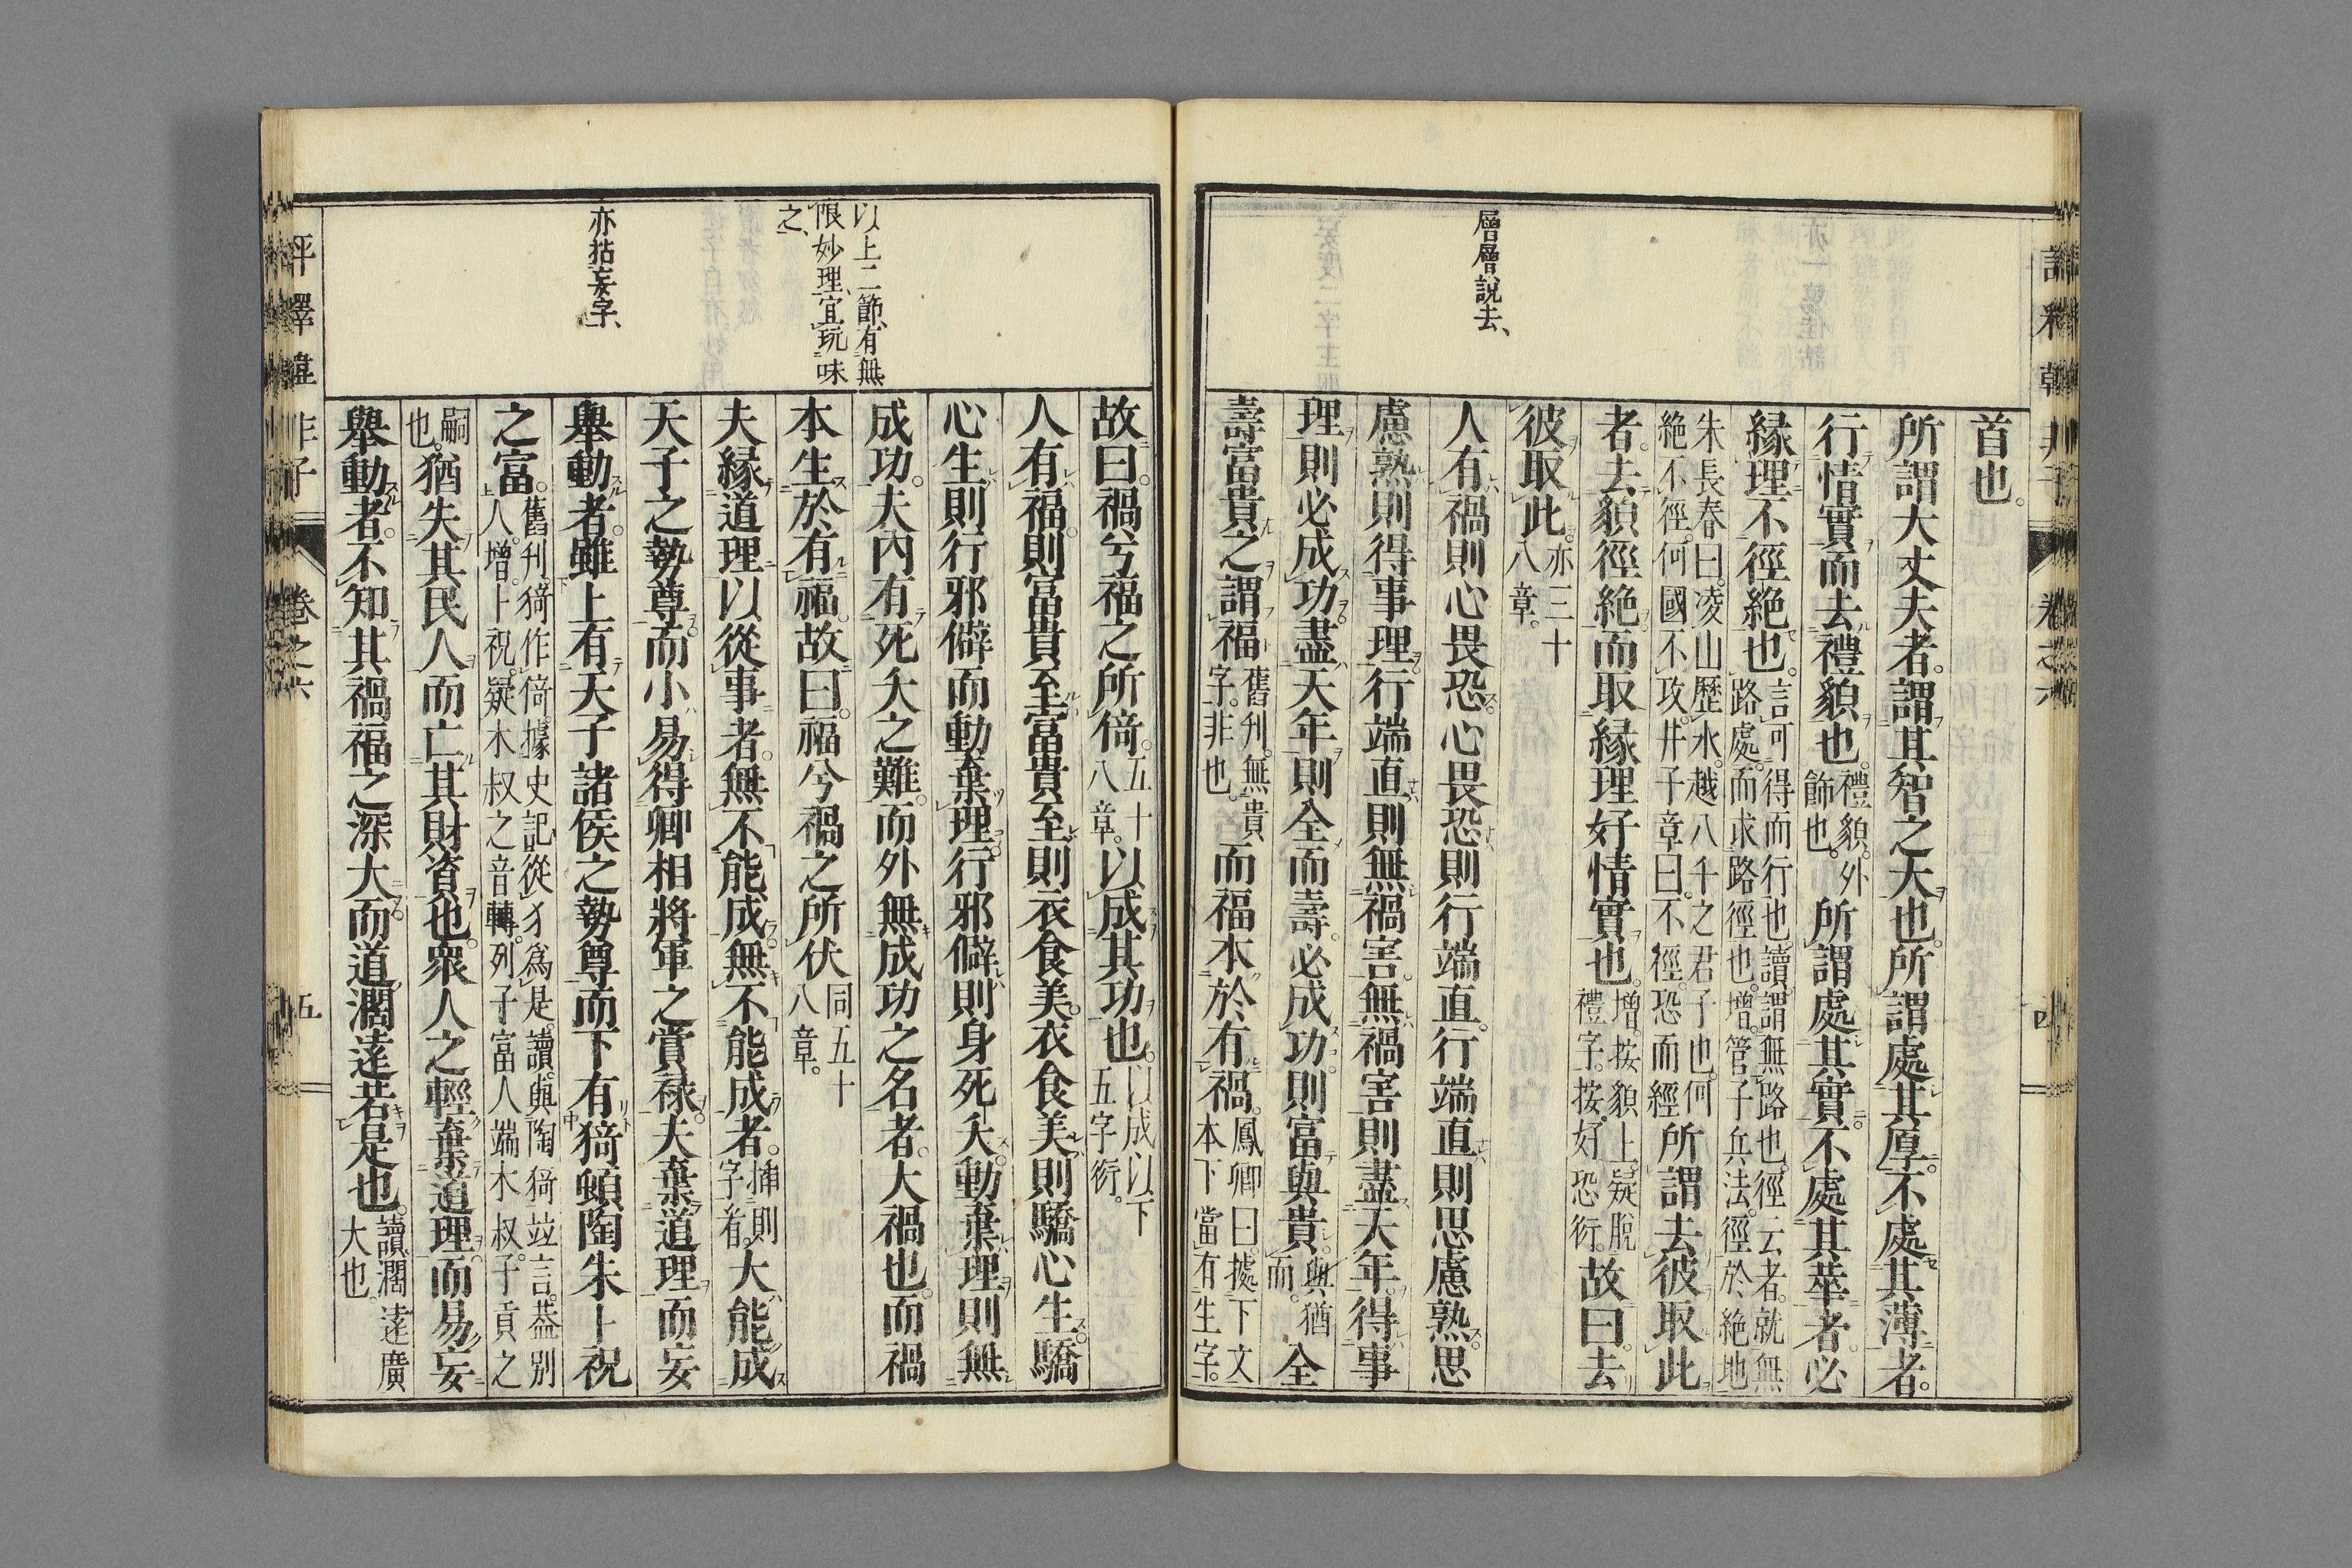 層層說去、
首也。
所謂大丈夫者。謂其智之大也。所謂處其厚。不處其薄者。
行情實而去禮貌也。禮貌。外飾也。所謂處其實。不處其華者。必
緣理不徑絕也。言可得而行也。讀。謂無路也。徑云者。就無路處。而求路徑也。增。管子兵法。徑於絕地
朱長春曰。凌山歷水。越八千之君子也。何絕不徑。何國不攻。井子章曰。不徑。恐而經所謂去彼取此
者。去貌徑絕。而取緣理好情實也。增。按貌上。疑脫禮字。按、好恐衍。故曰。去
彼取此。亦三十八章。
人有禍則心畏恐。心畏恐則行端直。行端直則思慮熟。思
慮熟則得事理。行端直則無禍害。無禍害則盡天年。得事
理則必成功。盡天年則全而壽。必成功。則富與貴。與猶而。全
壽富貴之謂福舊刊。無貴字。非也。而福本於有禍。鳳卿曰。據下文本下當有生字。
以上二節、有無
限妙理、宜玩味
之、
亦拈妄字、
故曰。禍兮福之所倚。五十八章。以成其功也。以成以下五字衍。
人有福。則富貴至。富貴至則衣食美。衣食美則驕心生。驕
心生則行邪僻而動棄理。行邪僻則身死夭。動棄理則無
成功。夫內有死夭之難。而外無成功之名者。大禍也。而禍
本生於有福。故曰。福兮禍之所伏同五十八章。
夫緣道理以從事者。無不能成。無不能成者。插則字看。大能成
天子之勢尊。而小易得卿相將軍之賞祿。夫棄道理而妄
舉動者。雖上有天子諸侯之勢尊。而下有猗頓陶朱卜祝
之富。舊刊。猗作倚。據史記從犭為是。讀。與陶猗竝言。蓋別人。增。卜祝。疑木叔之音轉。列子富人端木叔。子貢之
嗣也。猶失其民人。而亡其財資也。衆人之輕棄道理。而易妄
舉動者。不知其禍福之深大。而道濶遠若是也。讀。濶遠廣大也。
評釋韓非子 卷之六 四
評釋韓非子 卷之六 五